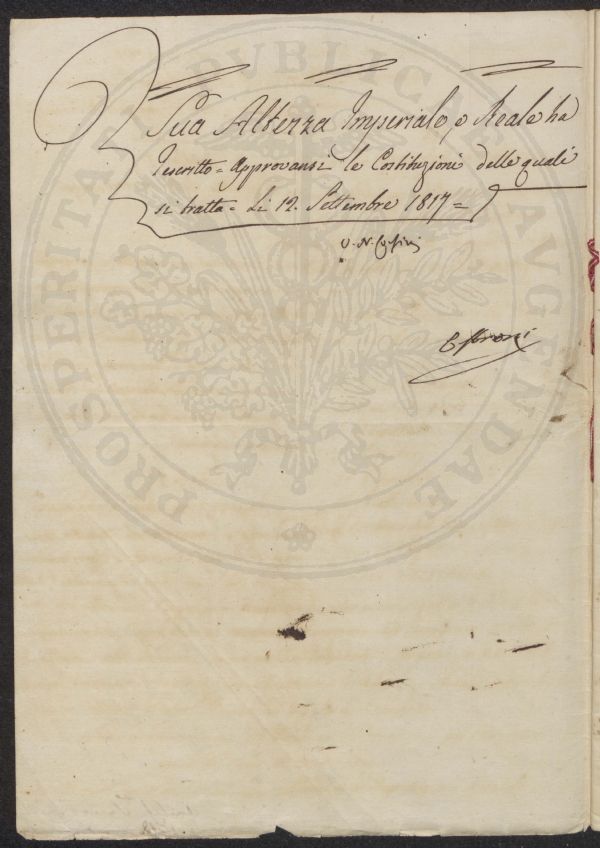 Sua Altezza Imperiale, e Reale ha
rescritto = Approvansi le Costituzioni delle quali
si tratta = Li 12. Settembre 1817 =
V. N. Corsini
PROSPERITATI PUBLICAE AUGENDAE